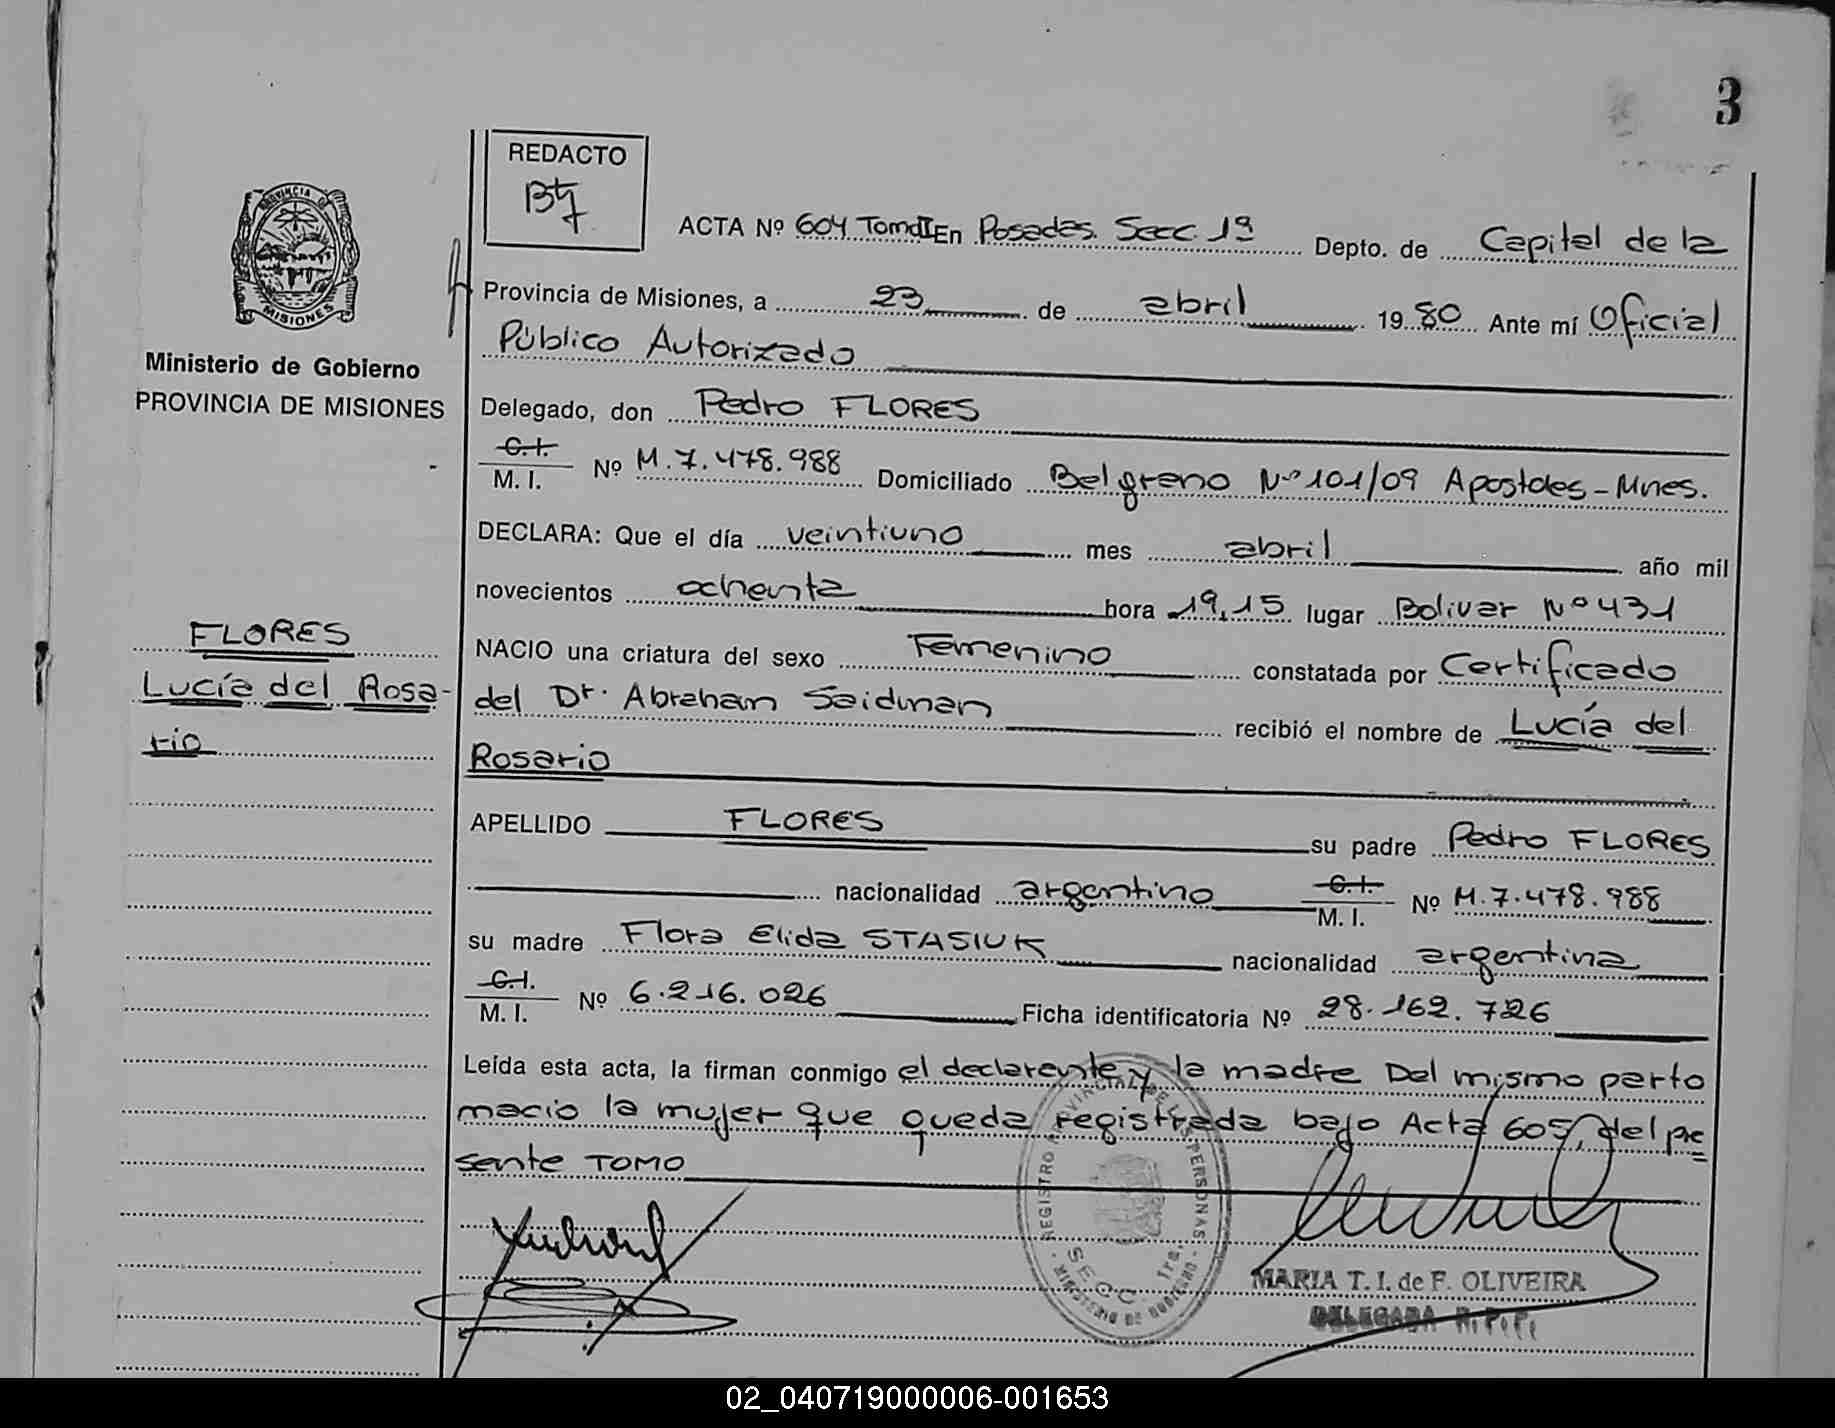 3
REDACTO
PROVINCIA DE
MISIONES
Ministerio de Gobierno
PROVINCIA DE MISIONES
FLORES
Lucía del Rosa-
rio
ACTA Nº 604 Tomo II En Posadas. Secc. 1ª Depto. de Capital de la
Provincia de Misiones, a 23 de abril 1980 Ante mí Oficial
Público Autorizado
Delegado, don Pedro FLORES
C.I. M. I. Nº M.7.478.988 Domiciliado Belgrano Nº 101/09 Apostoles - Mnes.
DECLARA: Que el día veintiuno mes abril año mil
novecientos ochenta hora 19,15 lugar Bolivar Nº 431
NACIO una criatura del sexo Femenino constatada por Certificado
del Dr. Abraham Saidman recibió el nombre de Lucía del
Rosario
APELLIDO FLORES su padre Pedro FLORES
nacionalidad argentino C.I. M. I. Nº M.7.478.988
su madre Flora Elida STASIUK nacionalidad argentina
C.I. M. I. Nº 6.216.026 Ficha identificatoria Nº 28.162.726
Leída esta acta, la firman conmigo el declarante y la madre Del mismo parto
nacio la mujer que queda registrada bajo Acta 605, del pre
sente TOMO
REGISTRO PROVINCIAL DE LAS PERSONAS
SECC. 1ra.
MINISTERIO DE GOBIERNO
MARIA T. I. de F. OLIVEIRA
DELEGADA R.P.P.
02_040719000006-001653